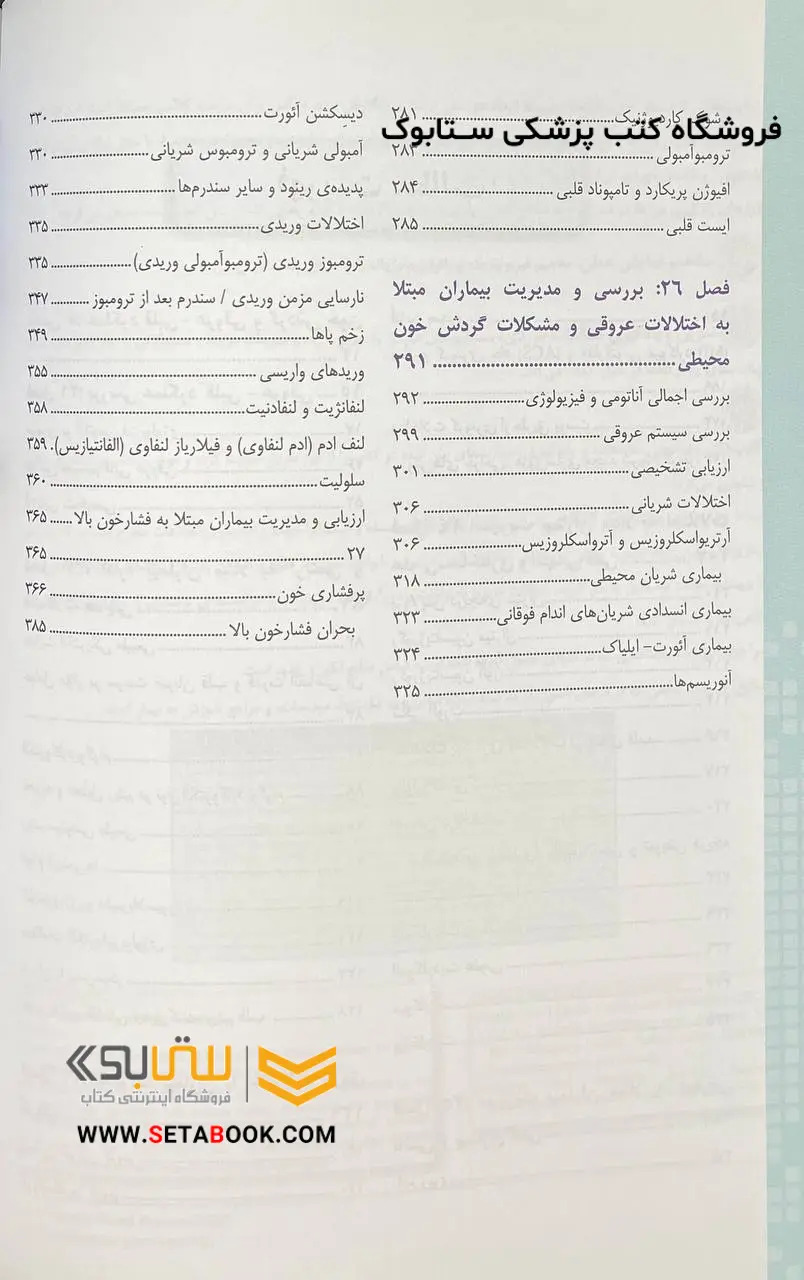 فروشگاه کتب پزشکی ستابوک
شوک کاردیوژنیک ۲۸۱
ترومبوآمبولی ۲۸۳
افیوژن پریکارد و تامپوناد قلبی ۲۸۴
ایست قلبی ۲۸۵
فصل ۲۶: بررسی و مدیریت بیماران مبتلا
به اختلالات عروقی و مشکلات گردش خون
محیطی ۲۹۱
بررسی اجمالی آناتومی و فیزیولوژی ۲۹۲
بررسی سیستم عروقی ۲۹۹
ارزیابی تشخیصی ۳۰۱
اختلالات شریانی ۳۰۶
آرتریواسکلروزیس و آترواسکلروزیس ۳۰۶
بیماری شریان محیطی ۳۱۸
بیماری انسدادی شریان‌های اندام فوقانی ۳۲۳
بیماری آئورت- ایلیاک ۳۲۴
آنوریسم‌ها ۳۲۵
دیسِکشن آئورت ۳۳۰
آمبولی شریانی و ترومبوس شریانی ۳۳۰
پدیده‌ی رینود و سایر سندرم‌ها ۳۳۳
اختلالات وریدی ۳۳۵
ترومبوز وریدی (ترومبوآمبولی وریدی) ۳۳۵
نارسایی مزمن وریدی / سندرم بعد از ترومبوز ۳۴۷
زخم پاها ۳۴۹
وریدهای واریسی ۳۵۵
لنفانژیت و لنفادنیت ۳۵۸
لنف ادم (ادم لنفاوی) و فیلاریاز لنفاوی (الفانتیازیس). ۳۵۹
سلولیت ۳۶۰
ارزیابی و مدیریت بیماران مبتلا به فشارخون بالا ۳۶۵
۲۷ ۳۶۵
پرفشاری خون ۳۶۶
بحران فشارخون بالا ۳۸۵
ستابوک
فروشگاه اینترنتی کتاب
WWW.SETABOOK.COM